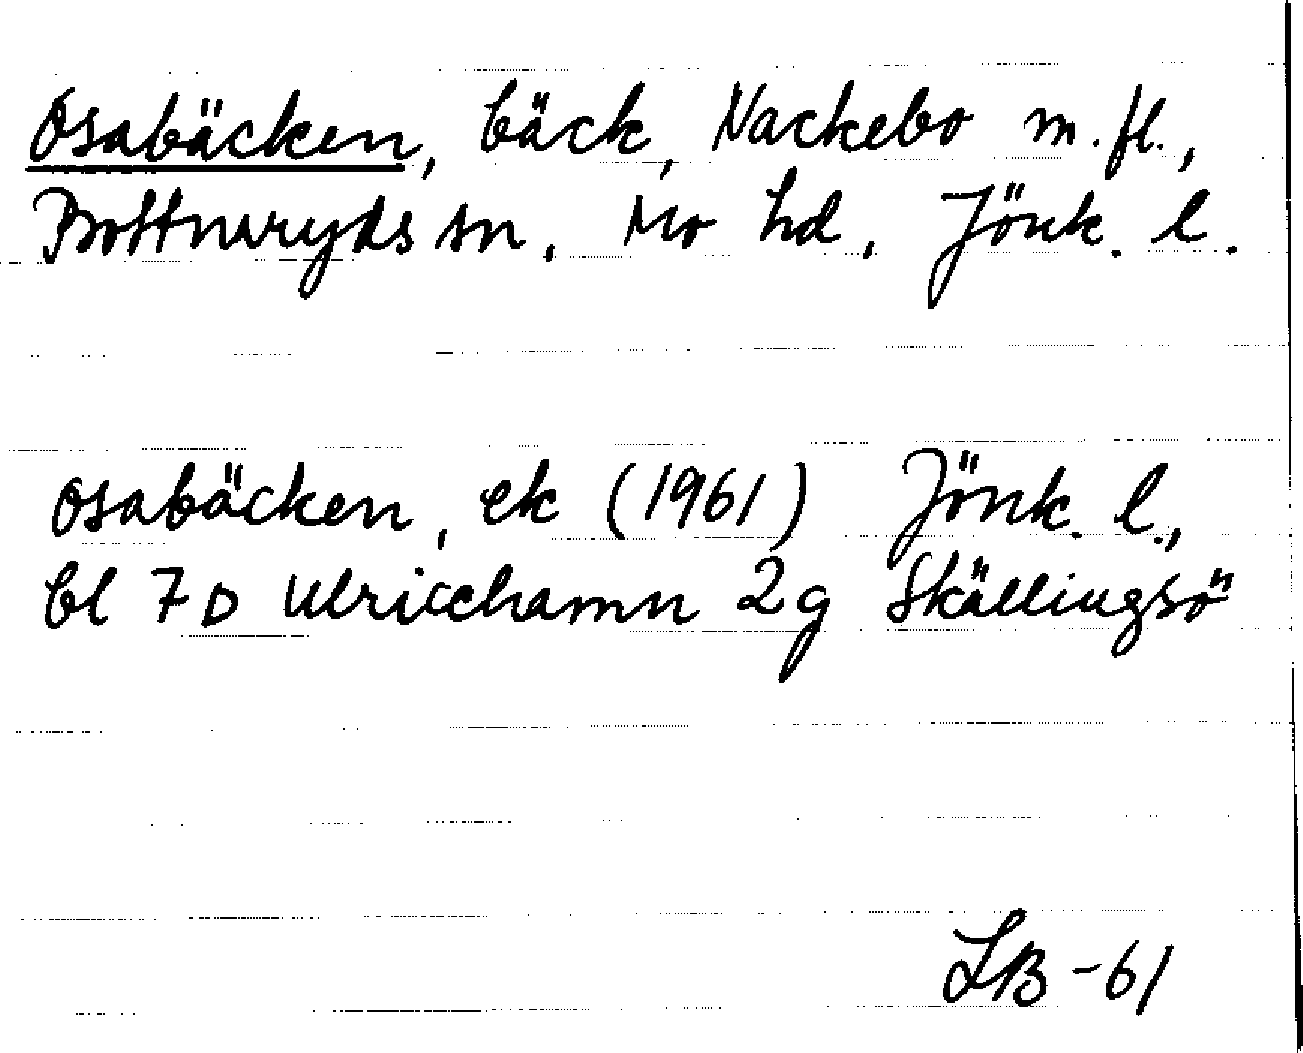 Osabäcken, bäck, Nackebo m.fl.,
Bottnaryds sn, Mo hd, Jönk. l.
Osabäcken, ek (1961) Jönk. l.,
bl 7D Ulricehamn 2g Skällingsö
LB -61